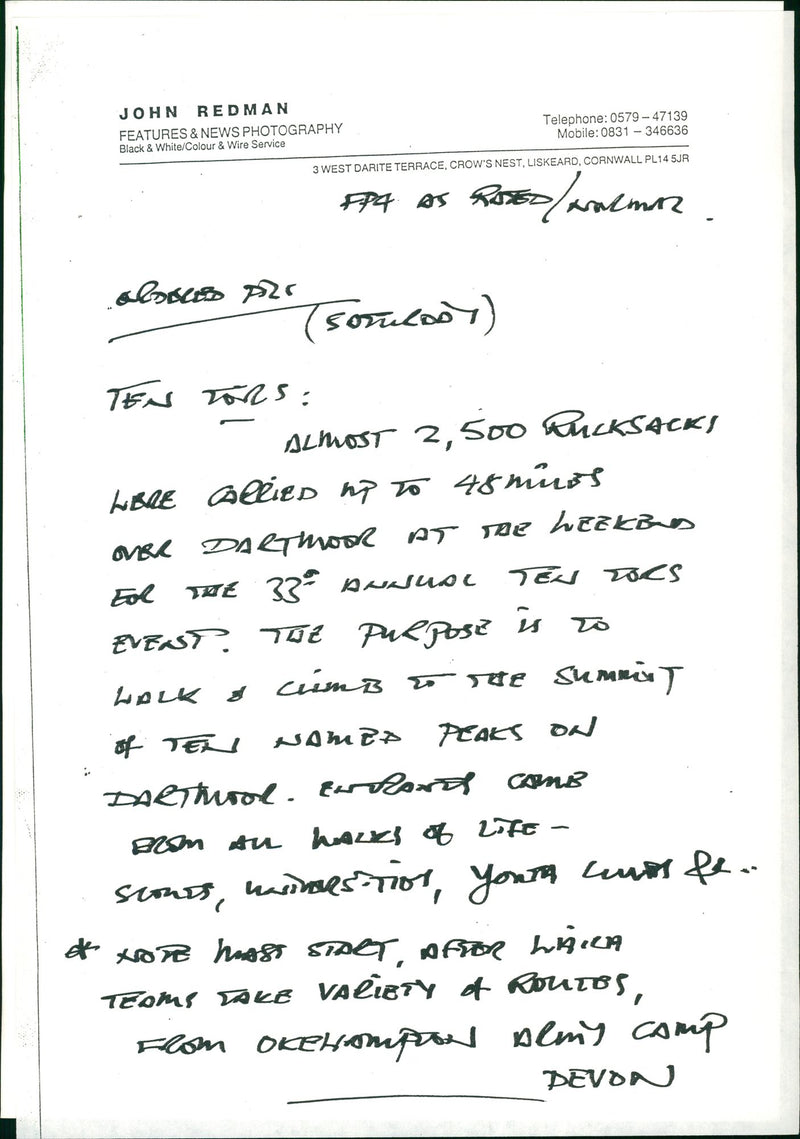 JOHN REDMAN
FEATURES & NEWS PHOTOGRAPHY
Black & White/Colour & Wire Service
Telephone: 0579 – 47139
Mobile: 0831 – 346636
3 WEST DARITE TERRACE, CROW'S NEST, LISKEARD, CORNWALL PL14 5JR
FP4 AS RATED/NORMAL
ORDERED PIX
(SATURDAY)
TEN TORS:
ALMOST 2,500 RUCKSACKS
WERE CARRIED UP TO 45 MILES
OVER DARTMOOR AT THE WEEKEND
FOR THE 33rd ANNUAL TEN TORS
EVENT. THE PURPOSE IS TO
WALK & CLIMB TO THE SUMMIT
OF TEN NAMED PEAKS ON
DARTMOOR. ENTRANTS CAME
FROM ALL WALKS OF LIFE –
SCOUTS, UNIVERSITIES, YOUTH CLUBS &c..
* NOTE MASS START, AFTER WHICH
TEAMS TAKE VARIETY OF ROUTES,
FROM OKEHAMPTON ARMY CAMP
DEVON